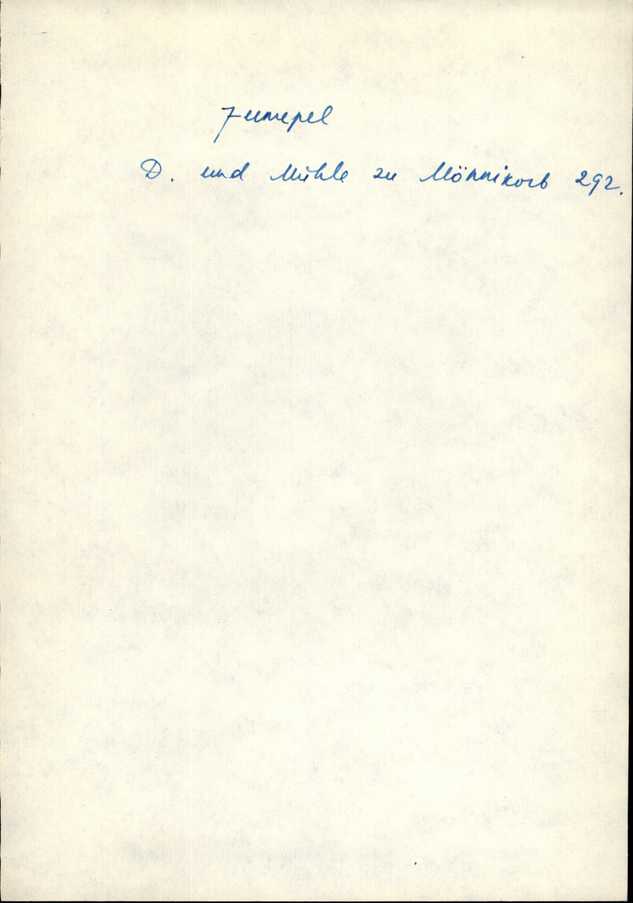 Jumepel
D. und Mühle zu Mönnikorb 292.